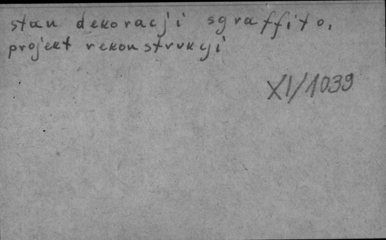 stan dekoracji sgraffito,
projekt rekonstrukcji
XI/1039